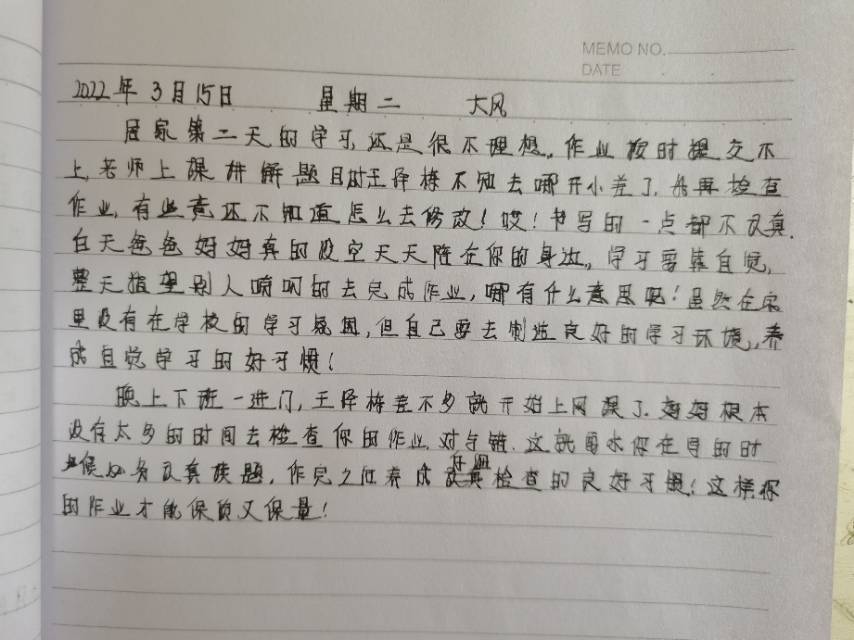 MEMO NO.
DATE
2022年 3月15日 星期二 大风
居家第二天的学习,还是很不理想。作业按时提交不
上,老师上课讲解题目时王泽栋不知去哪开小差了.我再检查
作业,有些竟还不知道怎么去修改!哎!书写的一点都不认真.
白天爸爸妈妈真的没空天天陪在你的身边。学习要靠自觉,
整天指望别人嘀叨的去完成作业,哪有什么意思呢!虽然在家
里没有在学校的学习氛围,但自己要去制造良好的学习环境,养
成自觉学习的好习惯!
晚上下班一进门,王泽栋差不多就开始上网课了.妈妈根本
没有太多的时间去检查你的作业.对与错.这就要求你在写的时
候必务认真读题,作完之后养成认真检查的良好习惯!这样你
的作业才能保质又保量!